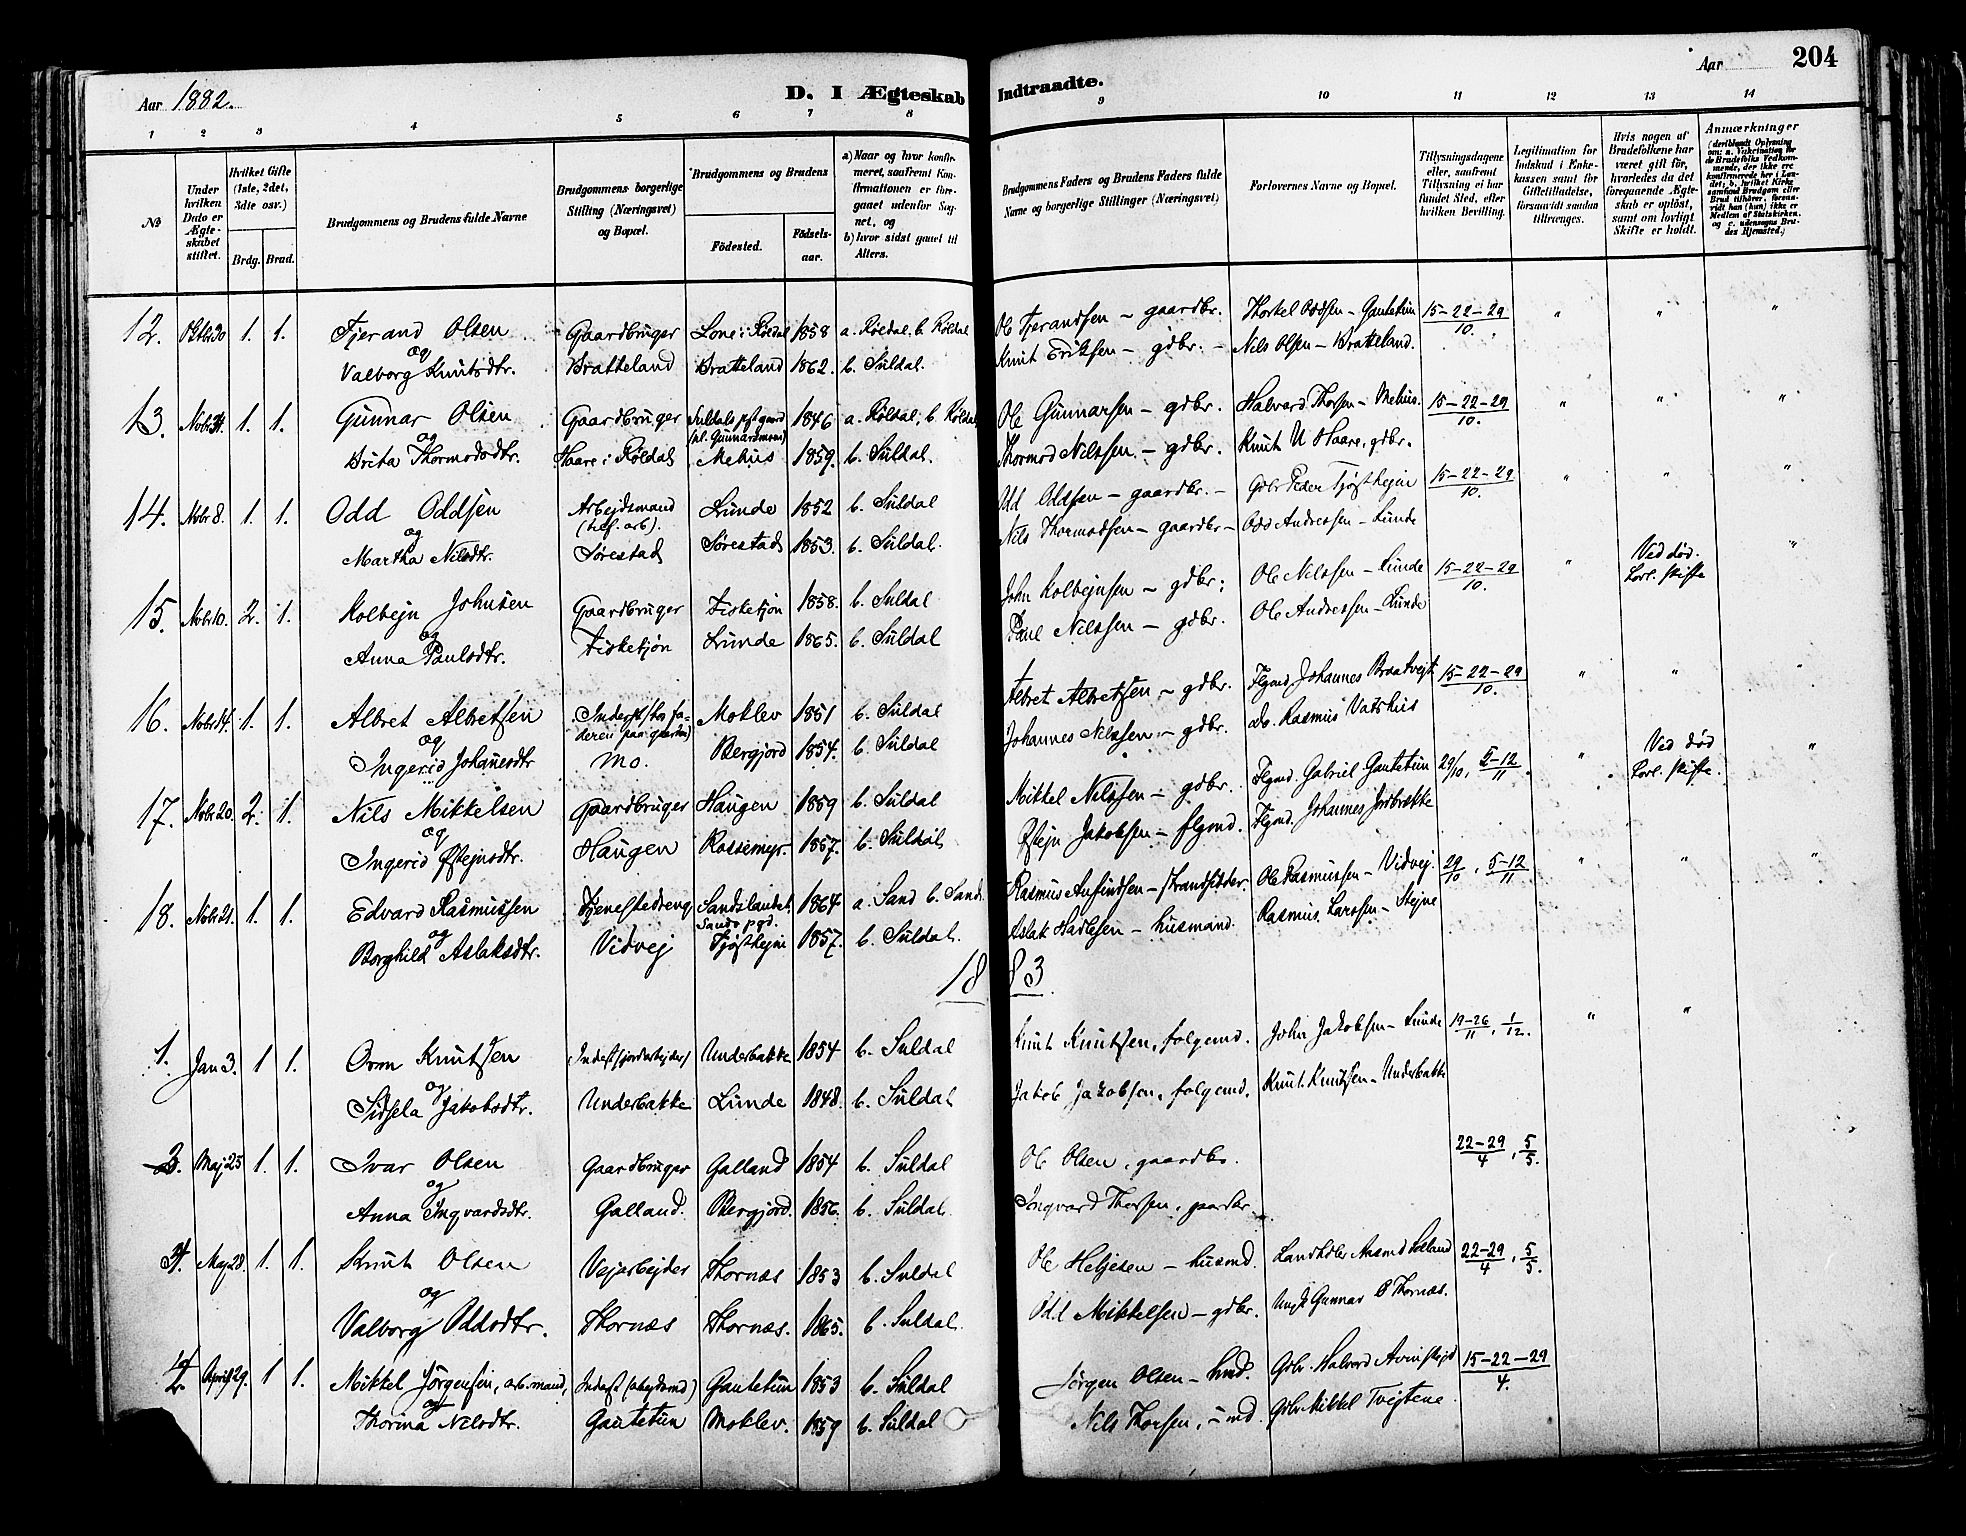 Aar 1882.
D. I Ægteskab Indtraadte.
Aar
204
1 2 3 4 5 6 7 8 9 10 11 12 13 14
No
Under hvilken Dato er Ægteskabet stiftet.
Hvilket Gifte (1ste, 2det, 3die osv.)
Brdg. Brud.
Brudgommens og Brudens fulde Navne
Brudgommens borgerlige Stilling (Næringsvei) og Bopæl.
Brudgommens og Brudens
Födested.
Födsels-aar.
a) Naar og hvor konfirmeret, saafremt Konfirmationen er foregaaet udenfor Sognet, og
b) hvor sidst gaaet til Alters.
Brudgommens Faders og Brudens Faders fulde Navne og borgerlige Stillinger (Næringsvei)
Forlovernes Navne og Bopæl.
Tillysningsdagene eller, saafremt Tillysning ei har fundet Sted, efter hvilken Bevilling.
Legitimation for Indskud i Enkekassen samt for Giftetilladelse, forsaavidt saadan tiltrænges.
Hvis nogen af Brudefolkene har været gift för, hvorledes da det foregaaende Ægteskab er oplöst, samt om lovligt Skifte er holdt.
Anmærkninger
12. Oktbr 30 1. 1. Tjerand Olsen Gaardbruger Lone i Röldal 1858 a. Röldal. b. Röldal Ole Tjerandsen – gaardbr. Thorkel Oddsen – Gautetun 15–22–29/10. " " "
og Valborg Knutsdtr. Bratteland Bratteland 1862. b. Suldal. Knut Eriksen – gdbr. – Nils Olsen – Bratteland.
13. Nobr 1. 1. Gunnar Olsen Gaardbruger Suldals pgd 1846 a. Röldal, b. Röldal Ole Gunnarsen – gdbr. Halvard Thorsen – Mehus. 15–22–29/10. " " "
og Brita Thormodsdtr. Haare i Röldal Mehus 1859. b. Suldal. Thormod Nilssen – gdbr. Knut N Haare, gdbr.
14. Nobr 8. 1. 1. Odd Oddsen Arbejdsmand Lunde 1852 b. Suldal Odd Oddsen – gaardbr. – Gdbr Peder Tjøstheim 15–22–29/10. " " "
og Martha Nilsdtr. Sørestad Sørestad 1853. b. Suldal. Nils Thormodsen – gaardbr – Odd Andersen – Lunde
15. Nobr 10. 2. 1. Kolbejn Johnsen Gaardbruger Fisketjön 1858. b. Suldal John Kolbejnsen – gdbr. Ole Nilssen – Lunde 15–22–29/10. " Ved död. Lovl. skifte "
og Anna Paulsdtr. Fisketjön Lunde 1865. b. Suldal Paul Nilssen – gdbr. Ole Andersen – Lunde
16. Nobr 14. 1. 1. Albret Albretsen Inderst Moklev 1851 b. Suldal Albret Albretsen – gdbr. Flgmd Johannes Braatvejt 15–22–29/10. " " "
og Ingerid Johannesdtr Mo. Bergjord 1854. b. Suldal Johannes Nilssen – gdbr. do. Rasmus Vatshus
17. Nobr 20. 2. 1. Nils Mikkelsen gaardbruger Haugen 1859 b. Suldal Mikkel Nilssen – gdbr. Flgmd. Gabriel Gautetun 29/10, 5–12/11. " Ved död Lovl. skifte. "
og Ingerid Østejnsdtr. Haugen Rossemyr. 1857. b. Suldal Østejn Jakobsen – flgmd. Flgmd. Johannes Jordbrække
18. Nobr 21. 1. 1. Edvard Rasmussen Tjenestedreng Sandslandet. Sands pgd. 1864. a. Sand b. Sand. Rasmus Anfindsen – strandsidder. Ole Rasmussen – Vidvej. 29/10, 5–12/11 " " "
og Borghild Aslaksdtr. Vidvej Tjøsthejm 1857. b. Suldal. Aslak Hadlesen – husmand. Rasmus Larssen – Stejne
1883
1. Jan 3. 1 1. Orm Knutsen Underbakke 1854 b. Suldal Knut Knutsen, folgemd. John Jakobsen – Lunde 19–26/11, 1/12. " "
og Sidsela Jakobsdtr. Underbakke Lunde 1848. b. Suldal Jakob Jakobsen, folgemd. Knut Knutsen – Underbakke
3. Maj 25 1. 1. Ivar Olsen Gaardbruger Galland 1854 b. Suldal Ole Olsen, gaardbr. 22–29/4, 5/5.
og Anna Ingvardsdtr. Galland. Bergjord. 1856. b. Suldal. Ingvard Thorsen, gaardbr.
4. Maj 28. 1. 1. Knut Olsen Vejarbejder Thornæs 1853 b. Suldal Ole Heljesen – husmd. 22–29/4, 5/5.
og Valborg Oddsdtr. Thornæs Thornæs. 1865. b. Suldal. Odd Mikkelsen – gdbr. Ungk Gunnar O Thornæs.
2. April 29. 1 1. Mikkel Jörgensen, arb.mand, Gautetun 1853 b. Suldal Jörgen Olsen – hmd. Gdbr. Halvard 15–22–29/4.
og Thorina Nilsdtr. Gautetun Moklev. 1859 b. Suldal Nils Thorsen, Gdbr Mikkel Tvejtene